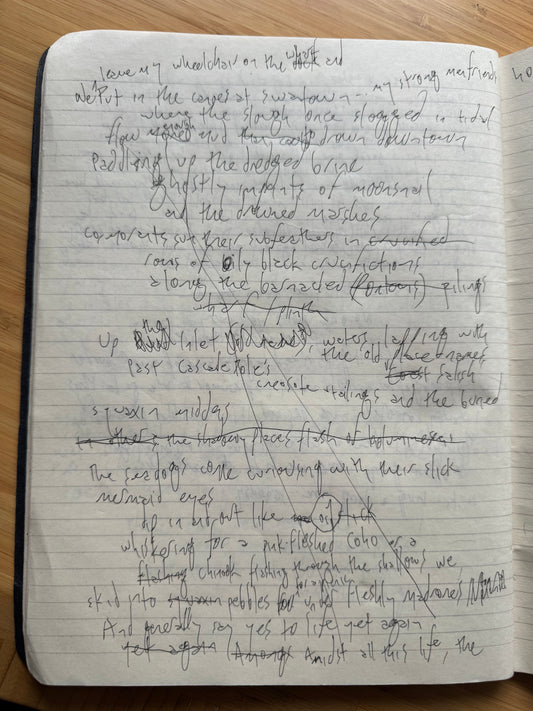 leave my wheelchair on the wharf and
We put in the canoes at swantown -- my strong menfriends
where the slough once slogged in tidal
flow and they could down downtown
Paddling up the dredged brine
ghostly imprints of moonsnail
and the drowned marshes
cormorants sun their subfeathers in crucified
rows of oily black crucifictions
along the barnacled pilings
wharf / plinth
up the Inlet, waters laffing with the old place names
Past Cascade Pole's
creosote and the buried
Coast Salish
squaxin middens
the shadowy places flash of
The seadogs come carousing with their slick
mermaid eyes
up in and out like oil
whiskering for a pink-fleshed Coho or a
flashing chinook flashing through the shallows we
skid into squaxin pebbles for a picnic under fleshly madrones
And generally say yes to life yet again
yet again (Amongst Amidst all this life, the